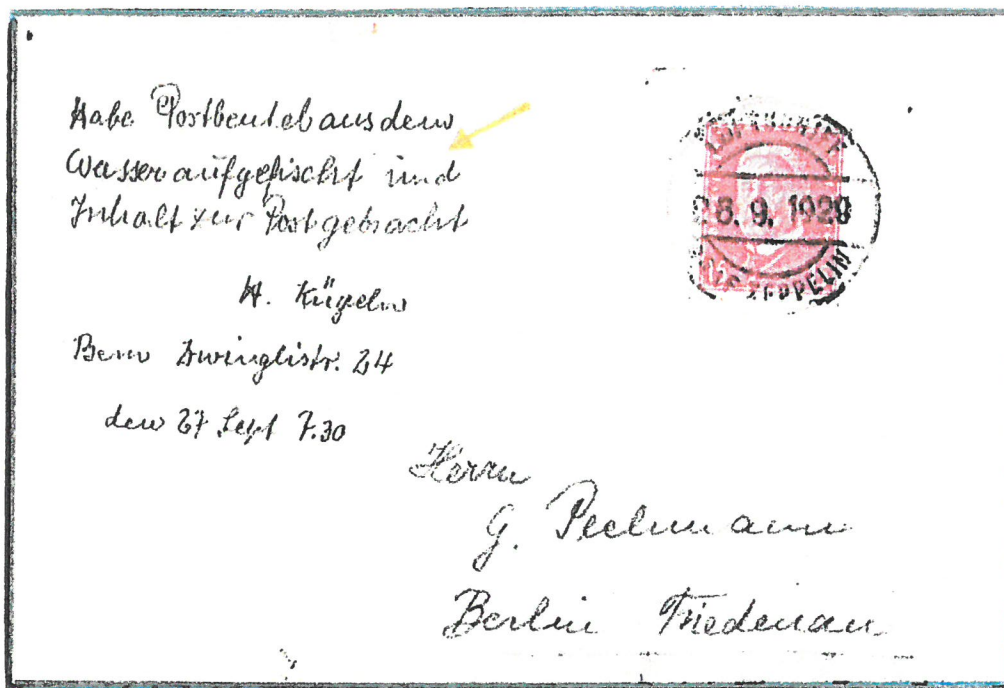 Habe Postbeutel aus dem
Wasser aufgefischt und
Inhalt zur Post gebracht
H. Kügeln
Bern Zwinglistr. 24
den 27 Sept 7.30
LUFTSCHIFF
28. 9. 1929
GRAF ZEPPELIN
Herrn
G. Pechmann
Berlin Friedenau